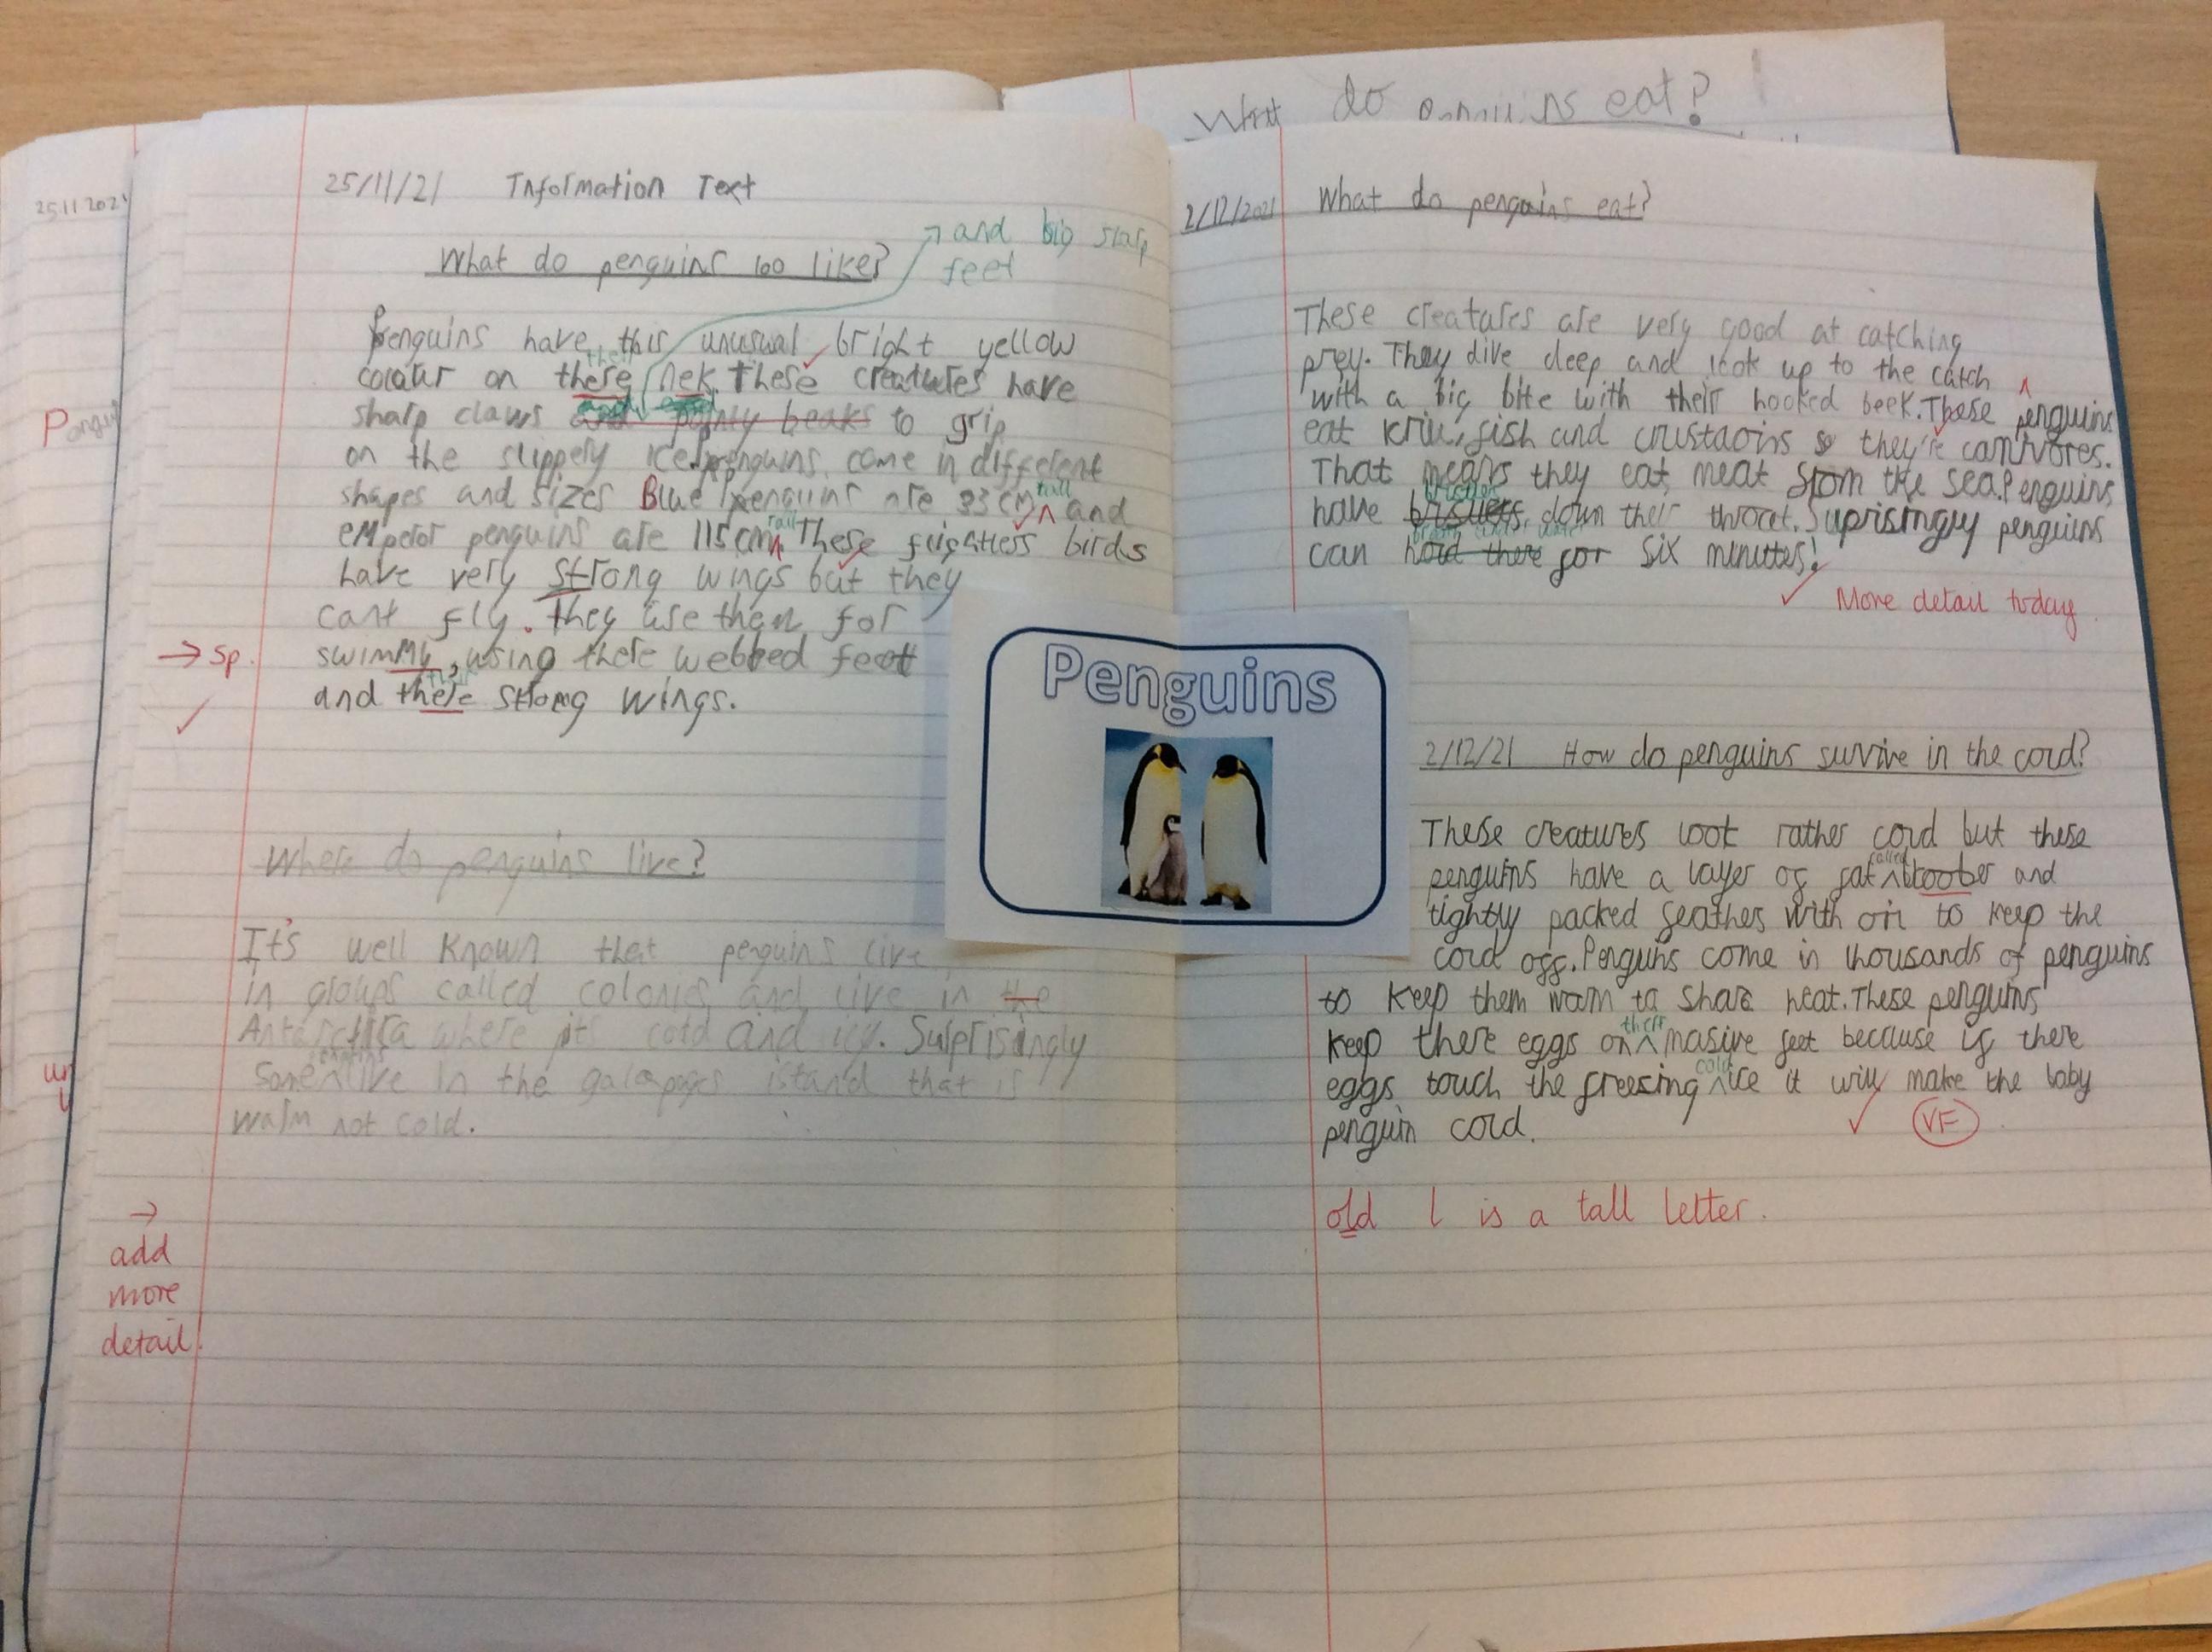 25/11/21 Information Text
What do penguins loo like?
and big sharp
feet
Penguins have this unusual bright yellow
colour on there nek. These creatures have
their
sharp claws and pointy beaks to grip
on the slippery ice. penguins come in different
shapes and sizes Blue penguins are 33 cm and
tall
emperor penguins are 115cm. These flightless birds
tall
have very strong wings but they
cant fly. they use them for
→ sp.
swimmy, using there webbed feet
and there strong wings.
Where do penguins live?
It's well known that penguins live
in groups called colonies and live in the
Antarctica where its cold and icy. Surprisingly
Some live in the galapages island that is
warm not cold.
→
add
more
detail.
25.11.2021
What do penguins eat?
2/12/2021 What do penguins eat?
These creatures are very good at catching
prey. They dive deep and look up to the catch
with a big bite with their hooked beek. These penguins
eat krill, fish and crustaoins so they're carnivores.
That means they eat meat from the sea. Penguins
have down their throat. Suprisingly penguins
bristles
can hold there for six minutes!
More detail today
Penguins
2/12/21 How do penguins survive in the cold?
These creatures look rather cold but these
penguins have a layer of fat bloober and
called
tightly packed feathes with oil to keep the
cold off. Penguins come in thousands of penguins
to keep them warm to share heat. These penguins
keep there eggs on masive feet because if there
their
eggs touch the freesing ice it will make the baby
cold
penguin cold.
VF
old l is a tall letter.